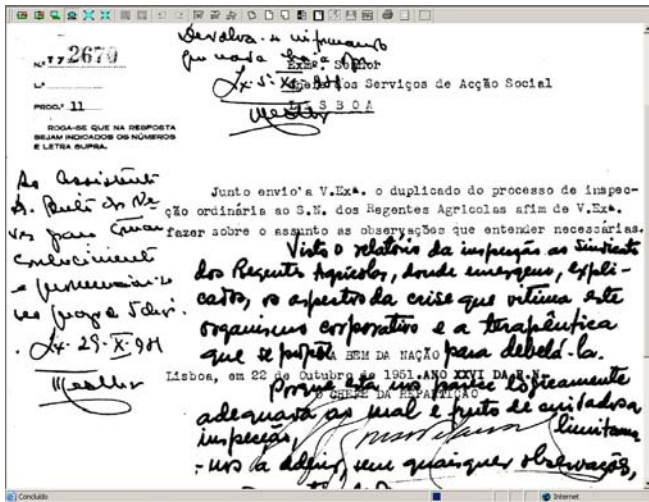 Devolva-se informando
que nada
Lx. 5-XI-951
N.º T 7 2670
L.º
PROC.º 11
ROGA-SE QUE NA RESPOSTA
SEJAM INDICADOS OS NÚMEROS
E LETRA SUPRA.
Exmº. Senhor
dos Serviços de Acção Social
L I S B O A
Ao Assistente
para
conhecimento
e pronunciar-se
no prazo de 5 dias.
Lx. 29-X-951
Junto envio a V.Exª. o duplicado do processo de inspec-
ção ordinária ao S.N. dos Regentes Agricolas afim de V.Exª.
fazer sobre o assunto as observações que entender necessárias.
Visto o relatório da inspecção ao Sindicato
dos Regentes Agrícolas, donde emergem, expli-
cados, os aspectos da crise que vitima este
organismo corporativo e a terapêutica
que se propõe para debelá-la.
A BEM DA NAÇÃO
Lisboa, em 22 de Outubro de 1951.ANO XXVI DA R.N.
O CHEFE DA REPARTIÇÃO
Porque esta nos parece lògicamente
adequada ao mal e fruto de cuidadosa
inspecção, limitamo-
-nos a aderir, sem quaisquer observações,
Concluído
Internet